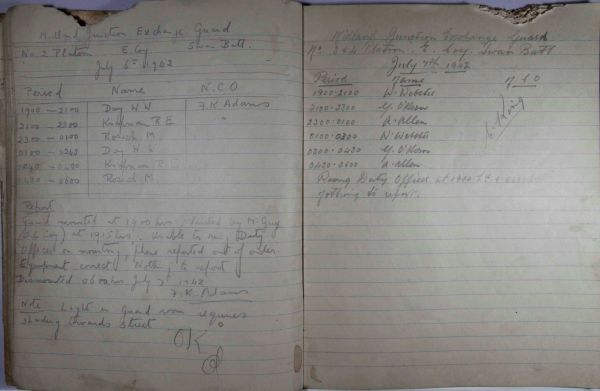 Midland Junction Exchange Guard
No. 2 Platoon E. Coy Swan Batt.
July 6th 1942
Period Name N.C.O
1900 - 2100 Day W W F. K Adams
2100 - 2300 R E "
2300 - 0100 M.
0100 - 0240 Day W W
0240 - 0420 R E
0420 - 0600 M.
Report
Guard mounted at 1900 hrs, visited by Mr Guy
(O.C Coy) at 1915 hrs. Unable to ring Duty
Officer on mounting, phone reported out of order.
Equipment correct. Nothing to report
Dismounted 0600 hrs July 7th 1942
F. K Adams
Note Light in Guard room requires
shading towards street.
OK
Midland Junction Exchange Guard
No. 3 & 4 Platoon. E. Coy. Swan Batt
July 7th 1942
Period Name N C O
1900 - 2100 W. Webster
2100 - 2300 G. O'Hern
2300 - 0100 A. Allen
0100 - 0300 W Webster
0300 - 0430 G. O'Hern
0430 - 0600 A. Allen
Rang Duty Officer at 1900
nothing to report.